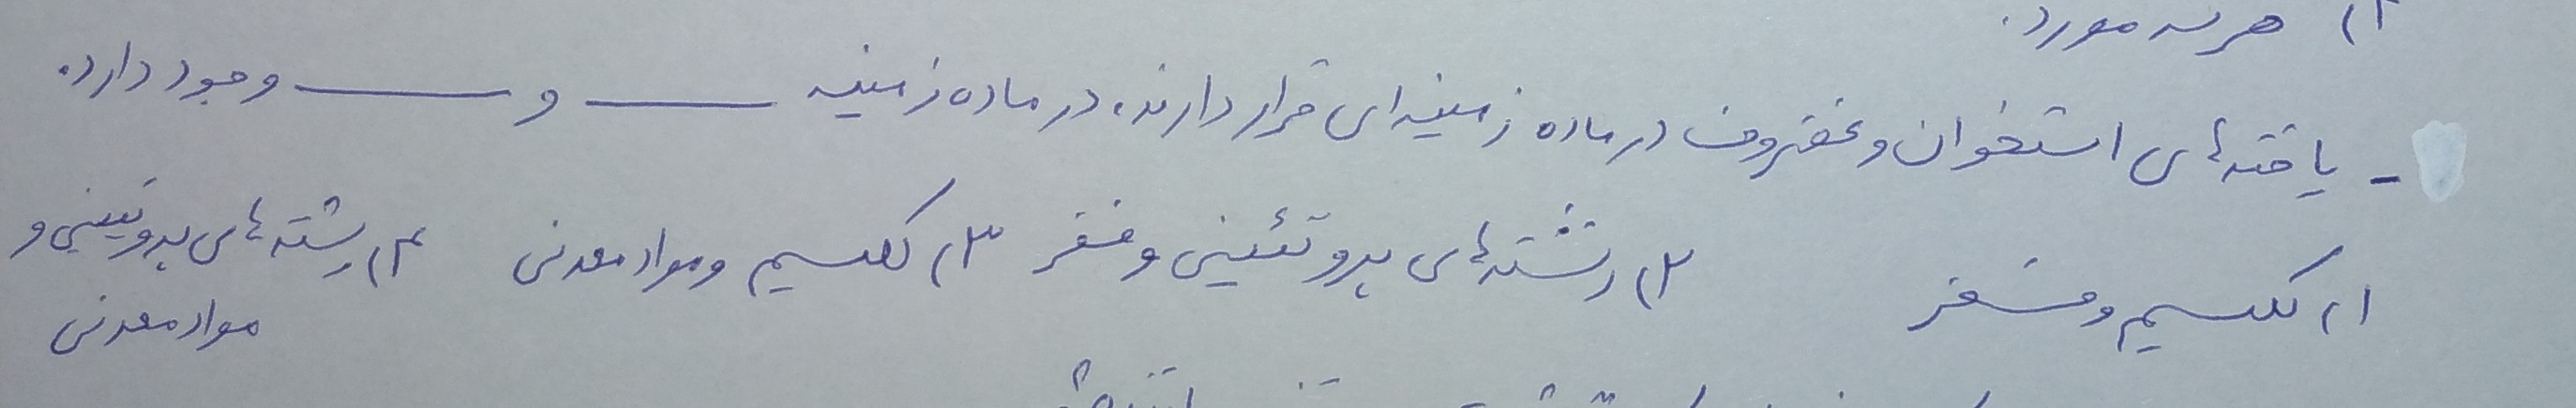 ۴) هر سه مورد.
- یاخته‌های استخوان و غضروف در ماده زمینه‌ای قرار دارند، در ماده زمینه ــــــ و ــــــ وجود دارد.
۱) کلسیم و فسفر ۲) رشته‌های پروتئینی و فسفر ۳) کلسیم و مواد معدنی ۴) رشته‌های پروتئینی و
مواد معدنی